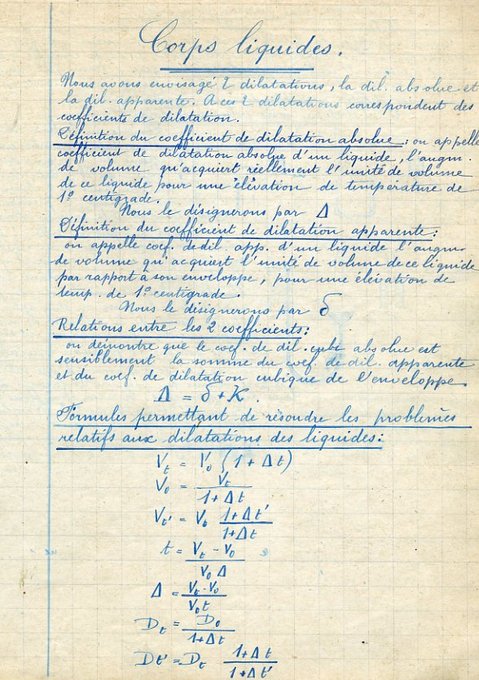 Corps liquides.
Nous avons envisagé 2 dilatations, la dil. absolue et
la dil. apparente. A ces 2 dilatations correspondent des
coefficients de dilatation.
Définition du coefficient de dilatation absolue : on appelle
coefficient de dilatation absolue d'un liquide, l'augm.
de volume qu'acquiert réellement l'unité de volume
de ce liquide pour une élévation de température de
1° centigrade.
Nous le désignerons par Δ
Définition du coefficient de dilatation apparente :
on appelle coef. de dil. app. d'un liquide l'augm.
de volume qu'acquiert l'unité de volume de ce liquide
par rapport à son enveloppe, pour une élévation de
temp. de 1° centigrade.
Nous le désignerons par δ
Relations entre les 2 coefficients :
on démontre que le coef. de dil. absolue est
sensiblement la somme du coef. de dil. apparente
et du coef. de dilatation cubique de l'enveloppe.
Δ = δ + K .
Formules permettant de résoudre les problèmes
relatifs aux dilatations des liquides :
V_t = V_0 (1 + Δt)
V_0 = V_t / (1 + Δt)
V_t' = V_t (1 + Δt') / (1 + Δt)
t = (V_t - V_0) / (V_0 Δ)
Δ = (V_t - V_0) / (V_0 t)
D_t = D_0 / (1 + Δt)
D_t' = D_t (1 + Δt) / (1 + Δt')